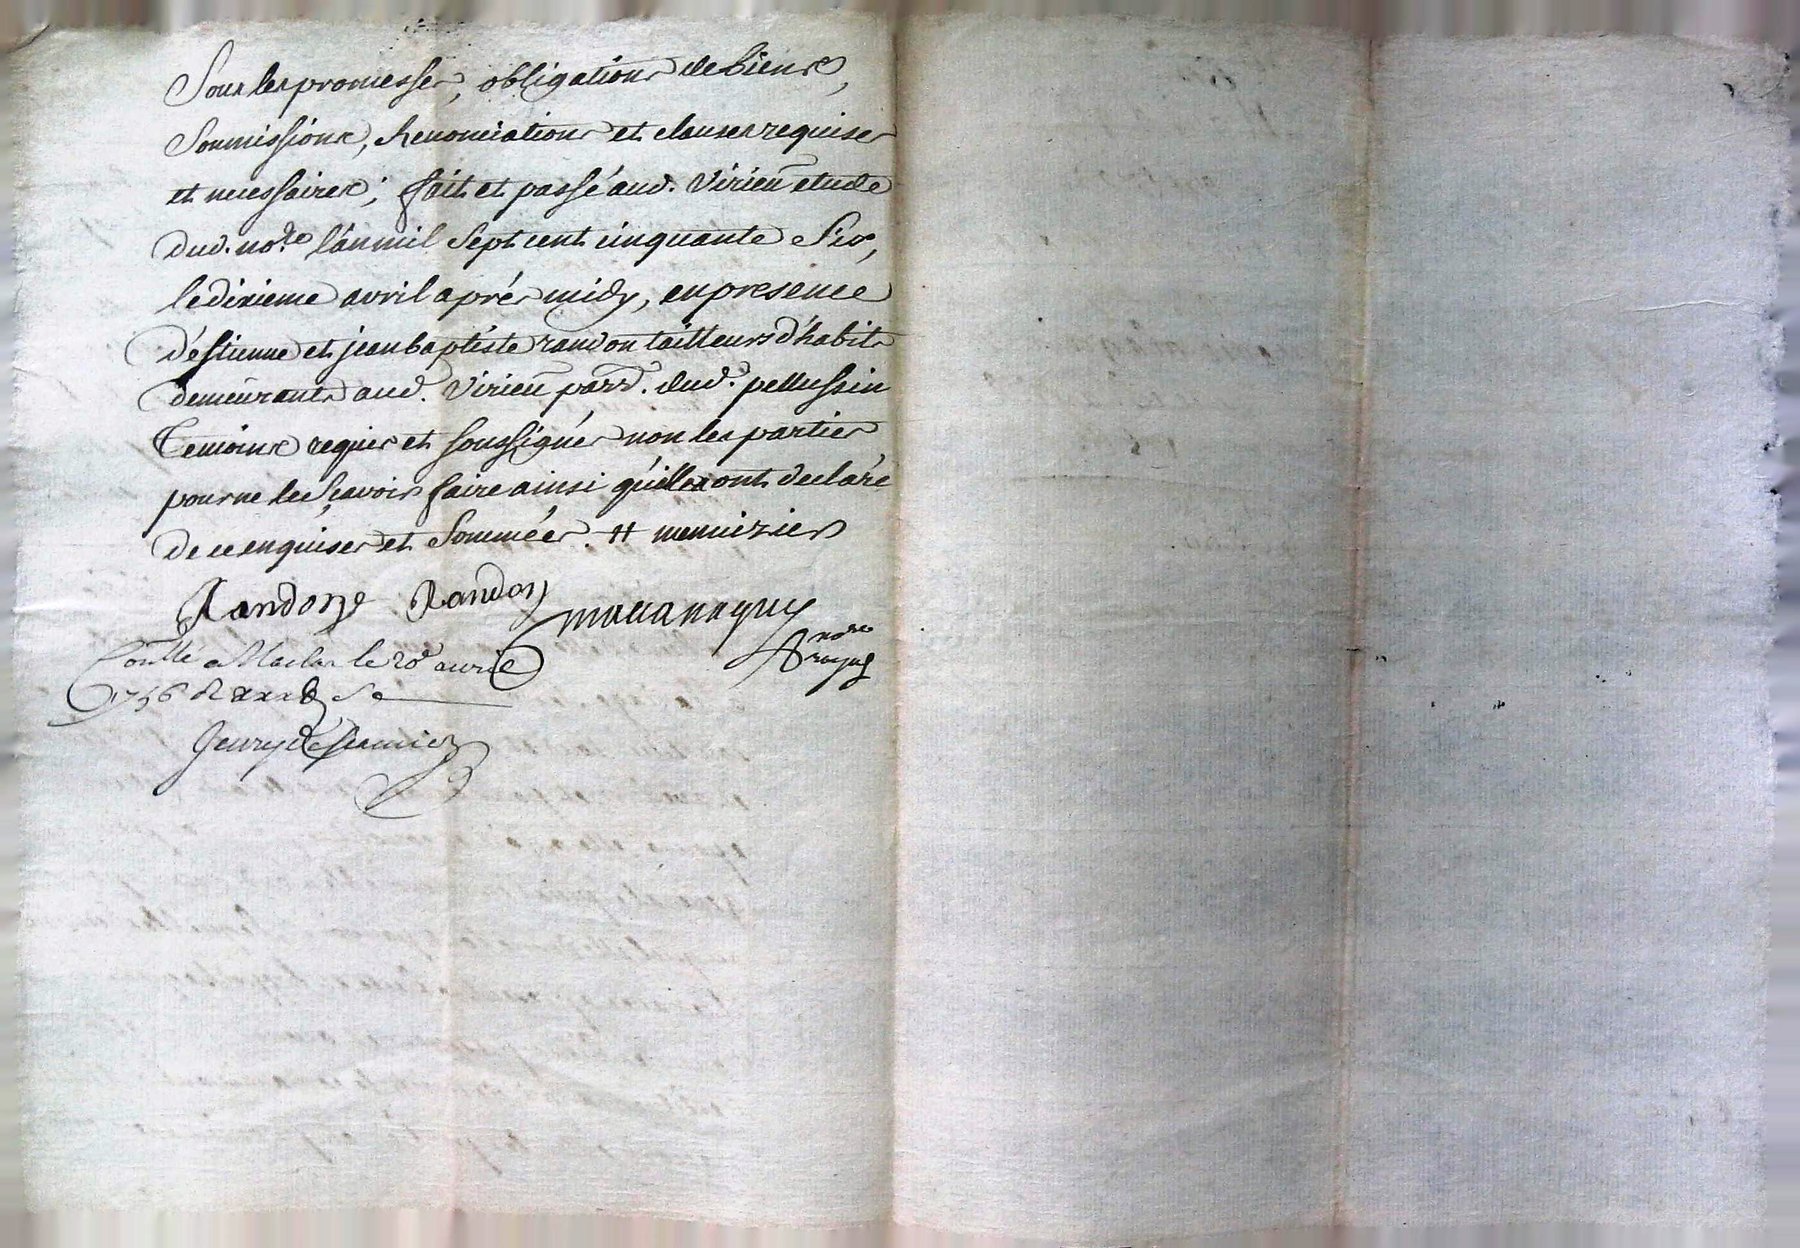 Sous les promesses, obligations de biens,
Soumissions, Renonciations et clauses requises
et necessaires; fait et passé aud. Virieu etude
dud. no.re l'an mil sept cent cinquante Six,
le dixieme avril aprés midy, en presence
d'éstienne et jean baptiste randon tailleurs d'habits
demeurants aud. Virieu parr. dud. pellussin
temoins requis et soussignés non les parties
pour ne le sçavoir faire ainsi qu'elles ont declaré
de ce enquises et Sommées. #
Randon Randon
no.re
Con.llé a Maclas le 20e avril
1756 R